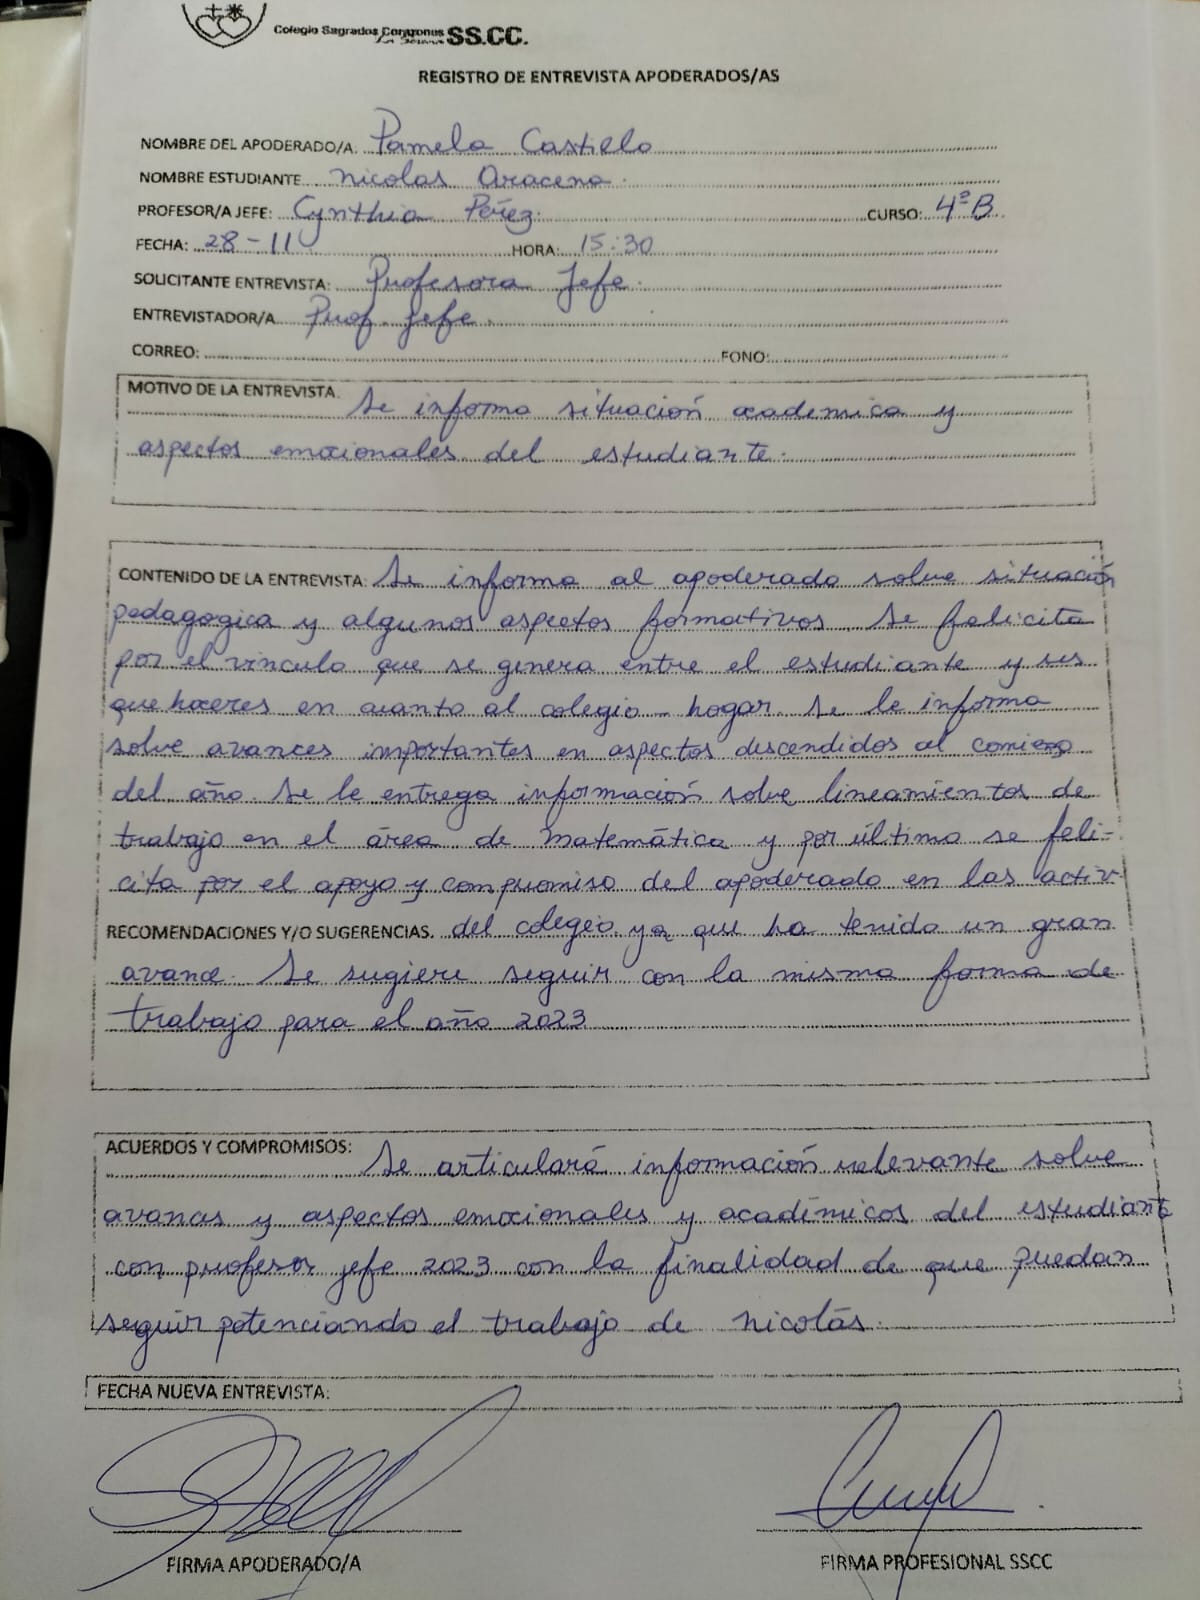 Colegio Sagrados Corazones SS.CC.
La Serena
REGISTRO DE ENTREVISTA APODERADOS/AS
NOMBRE DEL APODERADO/A. Pamela Castillo
NOMBRE ESTUDIANTE Nicolas Aracena.
PROFESOR/A JEFE: Cynthia Pérez. CURSO: 4º B
FECHA: 28-11 HORA: 15:30
SOLICITANTE ENTREVISTA: Profesora Jefe.
ENTREVISTADOR/A. Prof. Jefe.
CORREO: FONO:
MOTIVO DE LA ENTREVISTA. Se informa situación academica y
aspectos emocionales del estudiante.
CONTENIDO DE LA ENTREVISTA: Se informa al apoderado sobre situación
pedagogica y algunos aspectos formativos. Se felicita
por el vinculo que se genera entre el estudiante y sus
que haceres en cuanto al colegio - hogar. Se le informa
sobre avances importantes en aspectos descendidos al comienzo
del año. Se le entrega información sobre lineamientos de
trabajo en el área de matemática y por último se feli-
cita por el apoyo y compromiso del apoderado en las activ.
RECOMENDACIONES Y/O SUGERENCIAS. del colegio ya que ha tenido un gran
avance. Se sugiere seguir con la misma forma de
trabajo para el año 2023
ACUERDOS Y COMPROMISOS: Se articulará información relevante sobre
avances y aspectos emocionales y académicos del estudiante
con profesor jefe 2023 con la finalidad de que puedan
seguir potenciando el trabajo de Nicolás.
FECHA NUEVA ENTREVISTA:
FIRMA APODERADO/A FIRMA PROFESIONAL SSCC